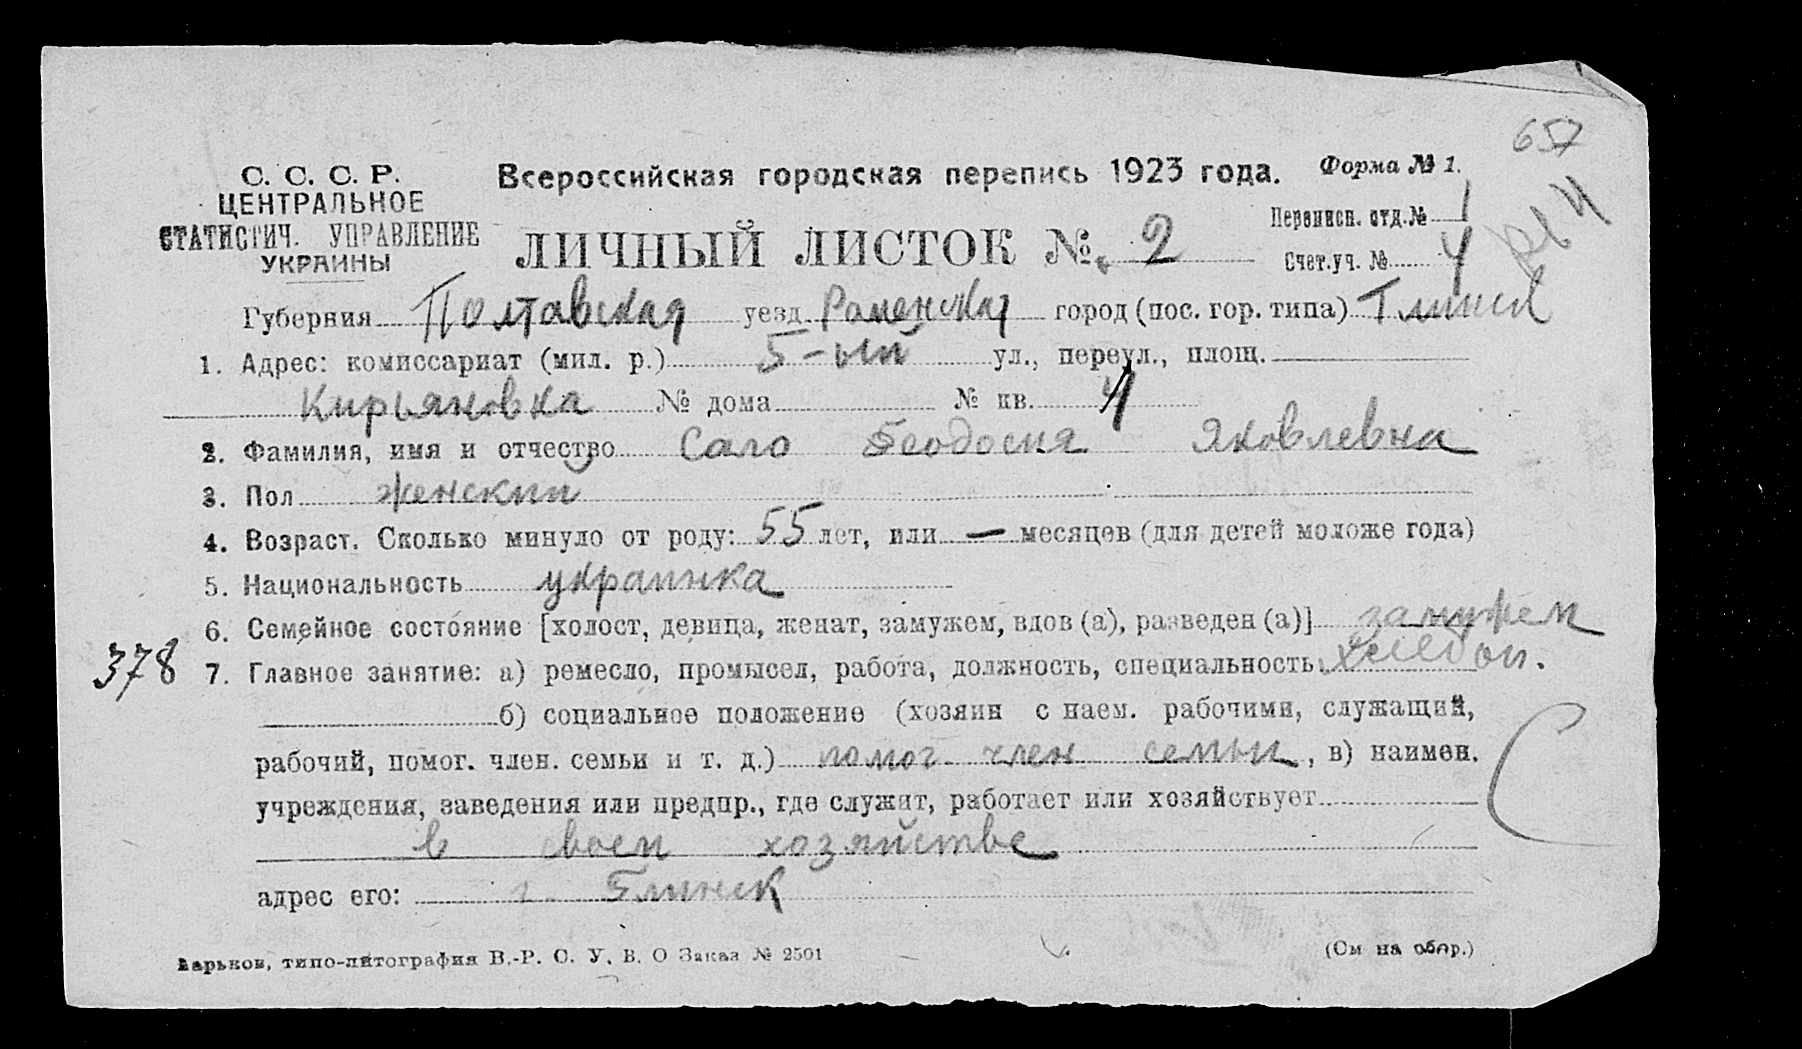 657
С. С. С. Р.
ЦЕНТРАЛЬНОЕ
СТАТИСТИЧ. УПРАВЛЕНИЕ
УКРАИНЫ
Всероссийская городская перепись 1923 года. Форма № 1.
ЛИЧНЫЙ ЛИСТОК № 2
Переписн. отд. № 1
Счет. уч. № 4
Губерния Полтавская уезд Роменский город (пос. гор. типа) Глинск
1. Адрес: комиссариат (мил. р.) 5-ый ул., переул., площ.
Кирьяновка № дома № кв. 4
2. Фамилия, имя и отчество Сало Феодосия Яковлевна
3. Пол женский
4. Возраст. Сколько минуло от роду: 55 лет, или — месяцев (для детей моложе года)
5. Национальность украинка
6. Семейное состояние [холост, девица, женат, замужем, вдов (а), разведен (а)] замужем
378 7. Главное занятие: а) ремесло, промысел, работа, должность, специальность
б) социальное положение (хозяин с наем. рабочими, служащий,
рабочий, помог. член. семьи и т. д.) помог член семьи, в) наимен.
учреждения, заведения или предпр., где служит, работает или хозяйствует
в своем хозяйстве
С
адрес его: г. Глинск
Харьков, типо-литография В.-Р. С. У. В. О Заказ № 2501
(См на обор.)